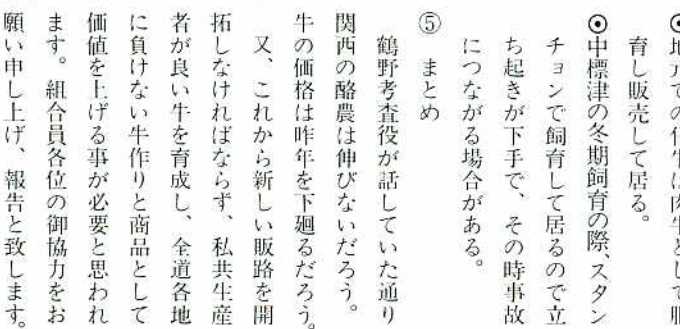 地元での仔牛は肉牛として肥
育し販売して居る。
⊙中標津の冬期飼育の際、スタン
チョンで飼育して居るので立
ち起きが下手で、その時事故
につながる場合がある。
⑤ まとめ
鶴野考査役が話していた通り
関西の酪農は伸びないだろう。
牛の価格は昨年を下廻るだろう。
又、これから新しい販路を開
拓しなければならず、私共生産
者が良い牛を育成し、全道各地
に負けない牛作りと商品として
価値を上げる事が必要と思われ
ます。組合員各位の御協力をお
願い申し上げ、報告と致します。